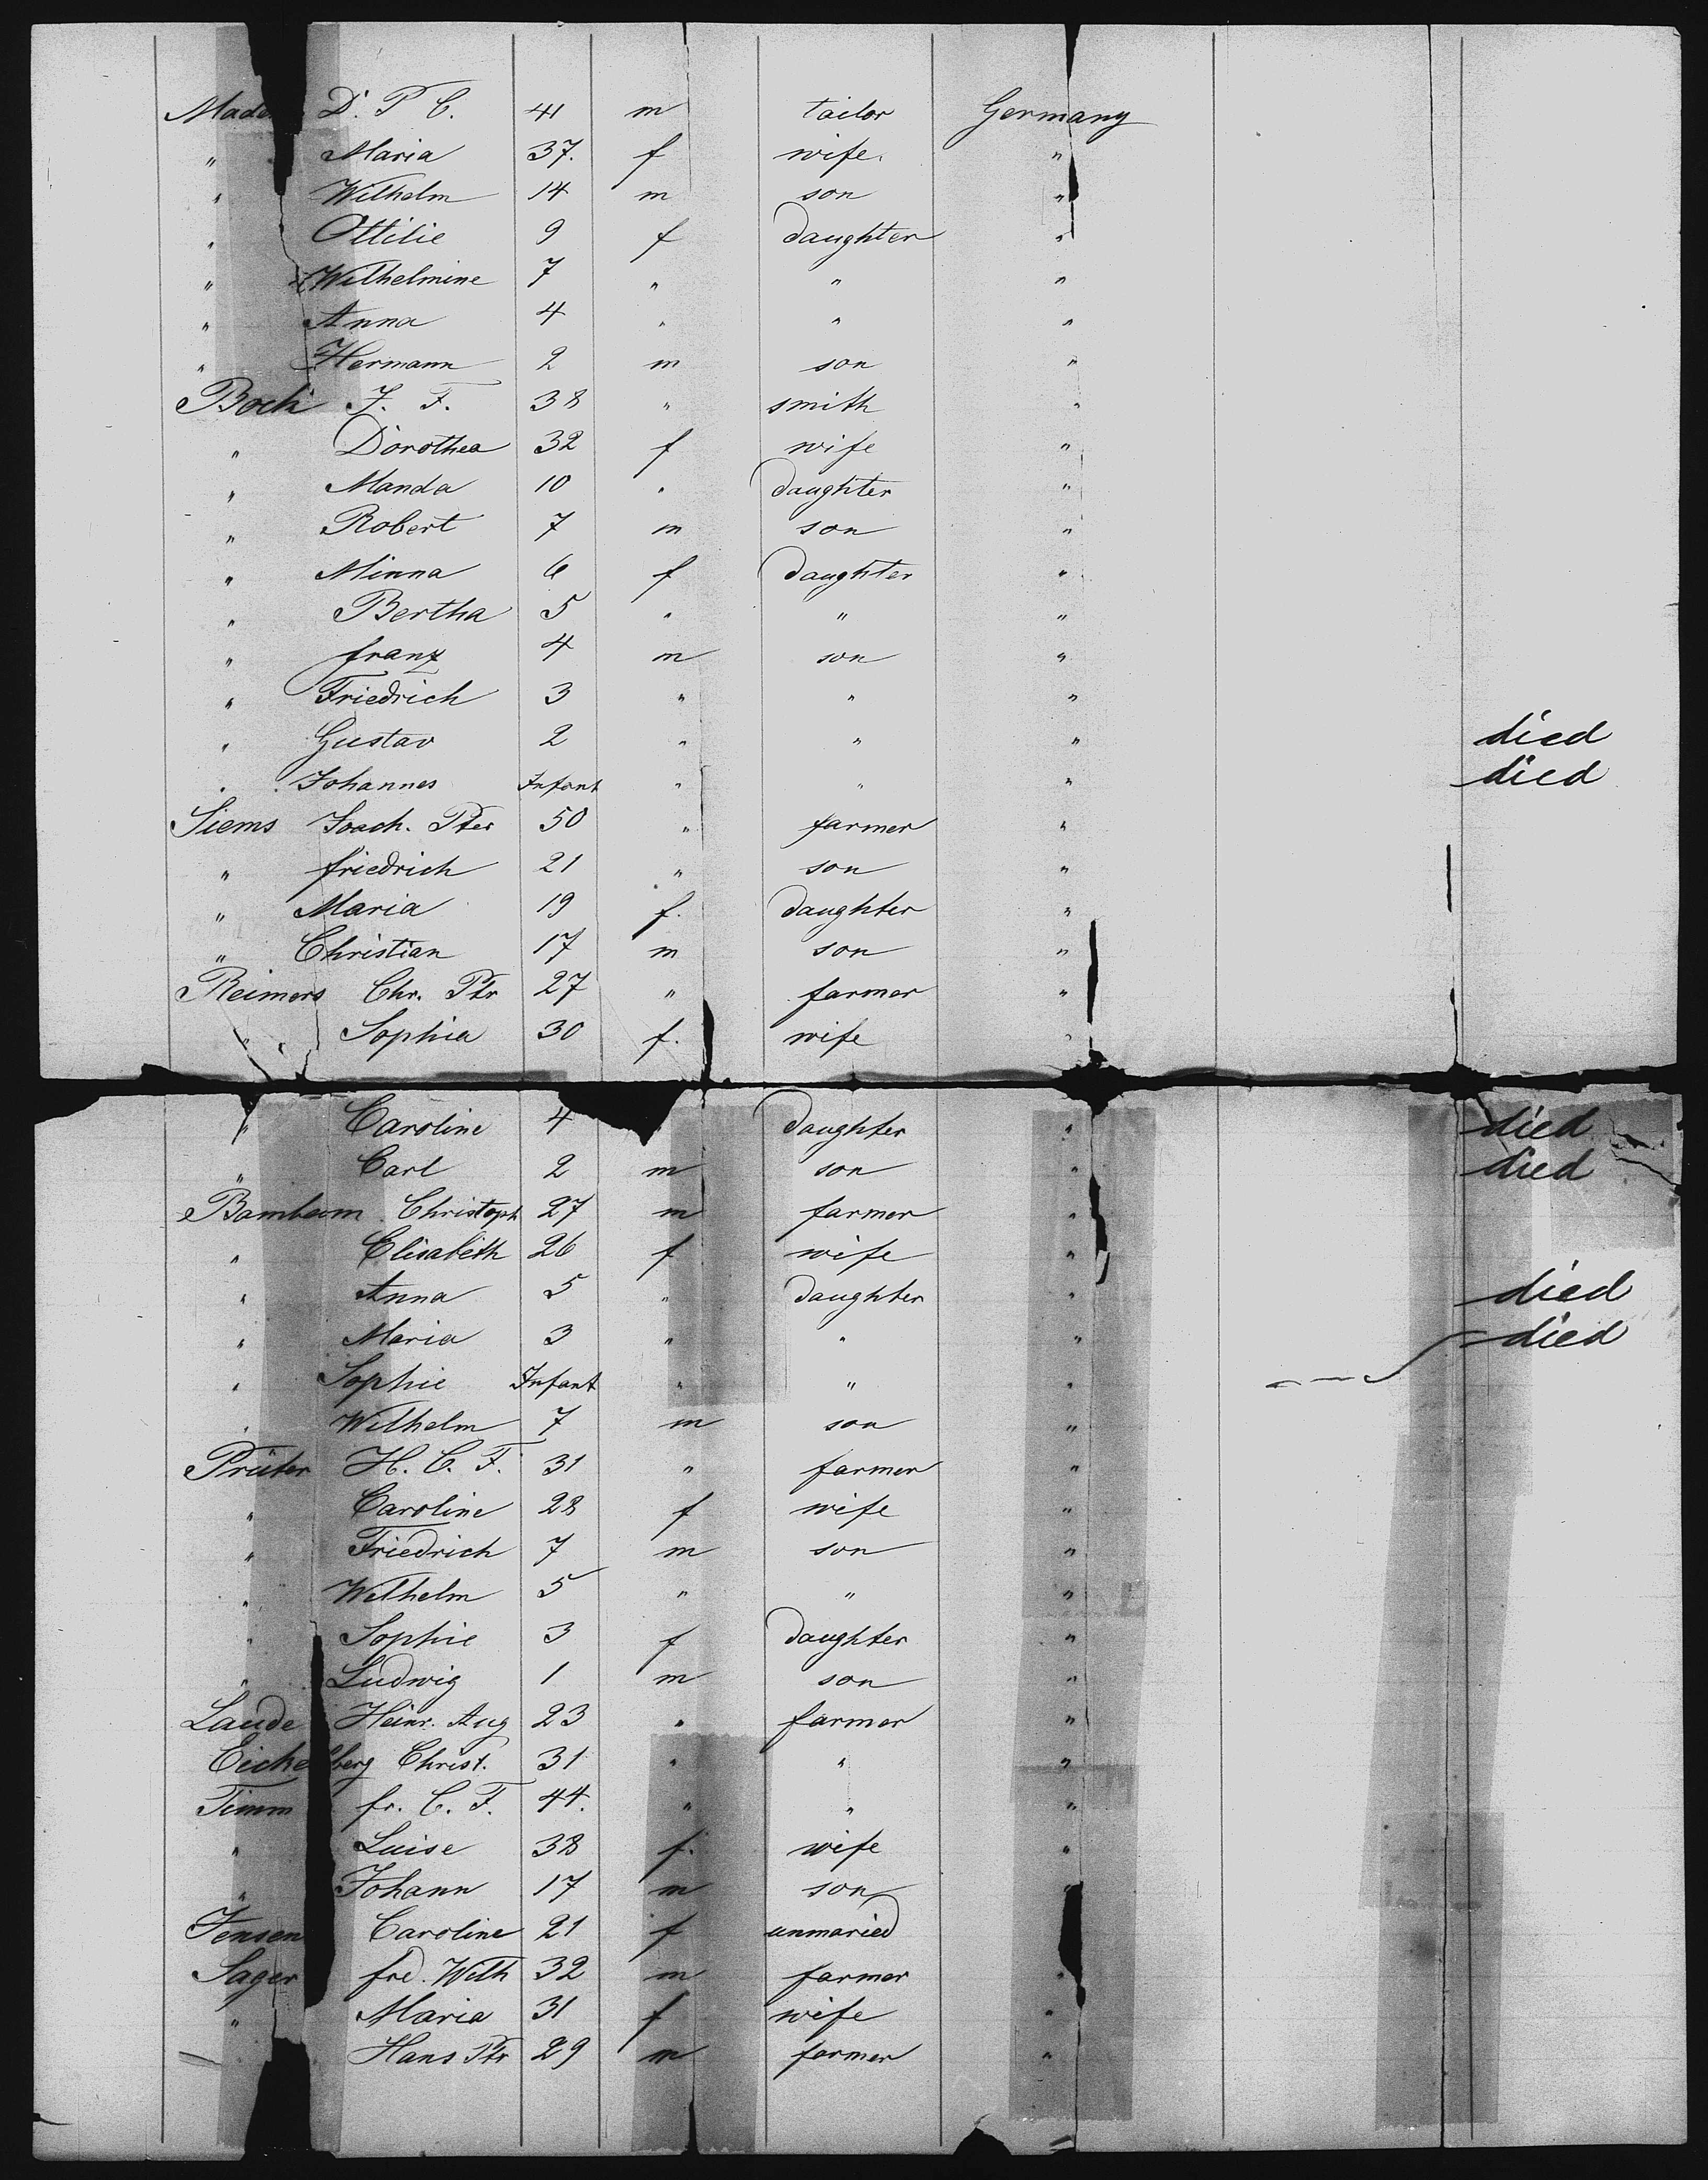 D. P. C. 41 m tailor Germany
" Maria 37. f wife "
" Wilhelm 14 m son "
" Ottilie 9 f daughter "
" Wilhelmine 7 " " "
" Anna 4 " " "
" Hermann 2 m son "
J. F. 38 " smith "
" Dorothea 32 f wife "
" Manda 10 " daughter "
" Robert 7 m son "
" Minna 6 f daughter "
" Bertha 5 " " "
" franz 4 m son "
" Friedrich 3 " " "
" Gustav 2 " " " died
" Johannes Infant " " " died
Siems Joach. Pter 50 " farmer "
" friedrich 21 " son "
" Maria 19 f. daughter "
" Christian 17 m son "
Reimers Chr. Ptr 27 " farmer "
" Sophia 30 f. wife "
" Caroline 4 daughter " died
" Carl 2 m son " died
Christoph 27 m farmer "
" Elisabeth 26 f wife "
" Anna 5 " daughter " died
" Maria 3 " " " died
" Sophie Infant " " "
" Wilhelm 7 m son "
Prüter H. C. F. 31 " farmer "
" Caroline 28 f wife "
" Friedrich 7 m son "
" Wilhelm 5 " " "
" Sophie 3 f daughter "
" Ludwig 1 m son "
Laude Heinr. Aug 23 " farmer "
Christ. 31 " " "
Timm fr. C. F. 44. " " "
" Luise 38 f. wife "
" Johann 17 m son "
Jensen Caroline 21 f unmaried
Sager fred. Wilh 32 m farmer "
" Maria 31 f wife "
Hans Ptr 29 m farmer "